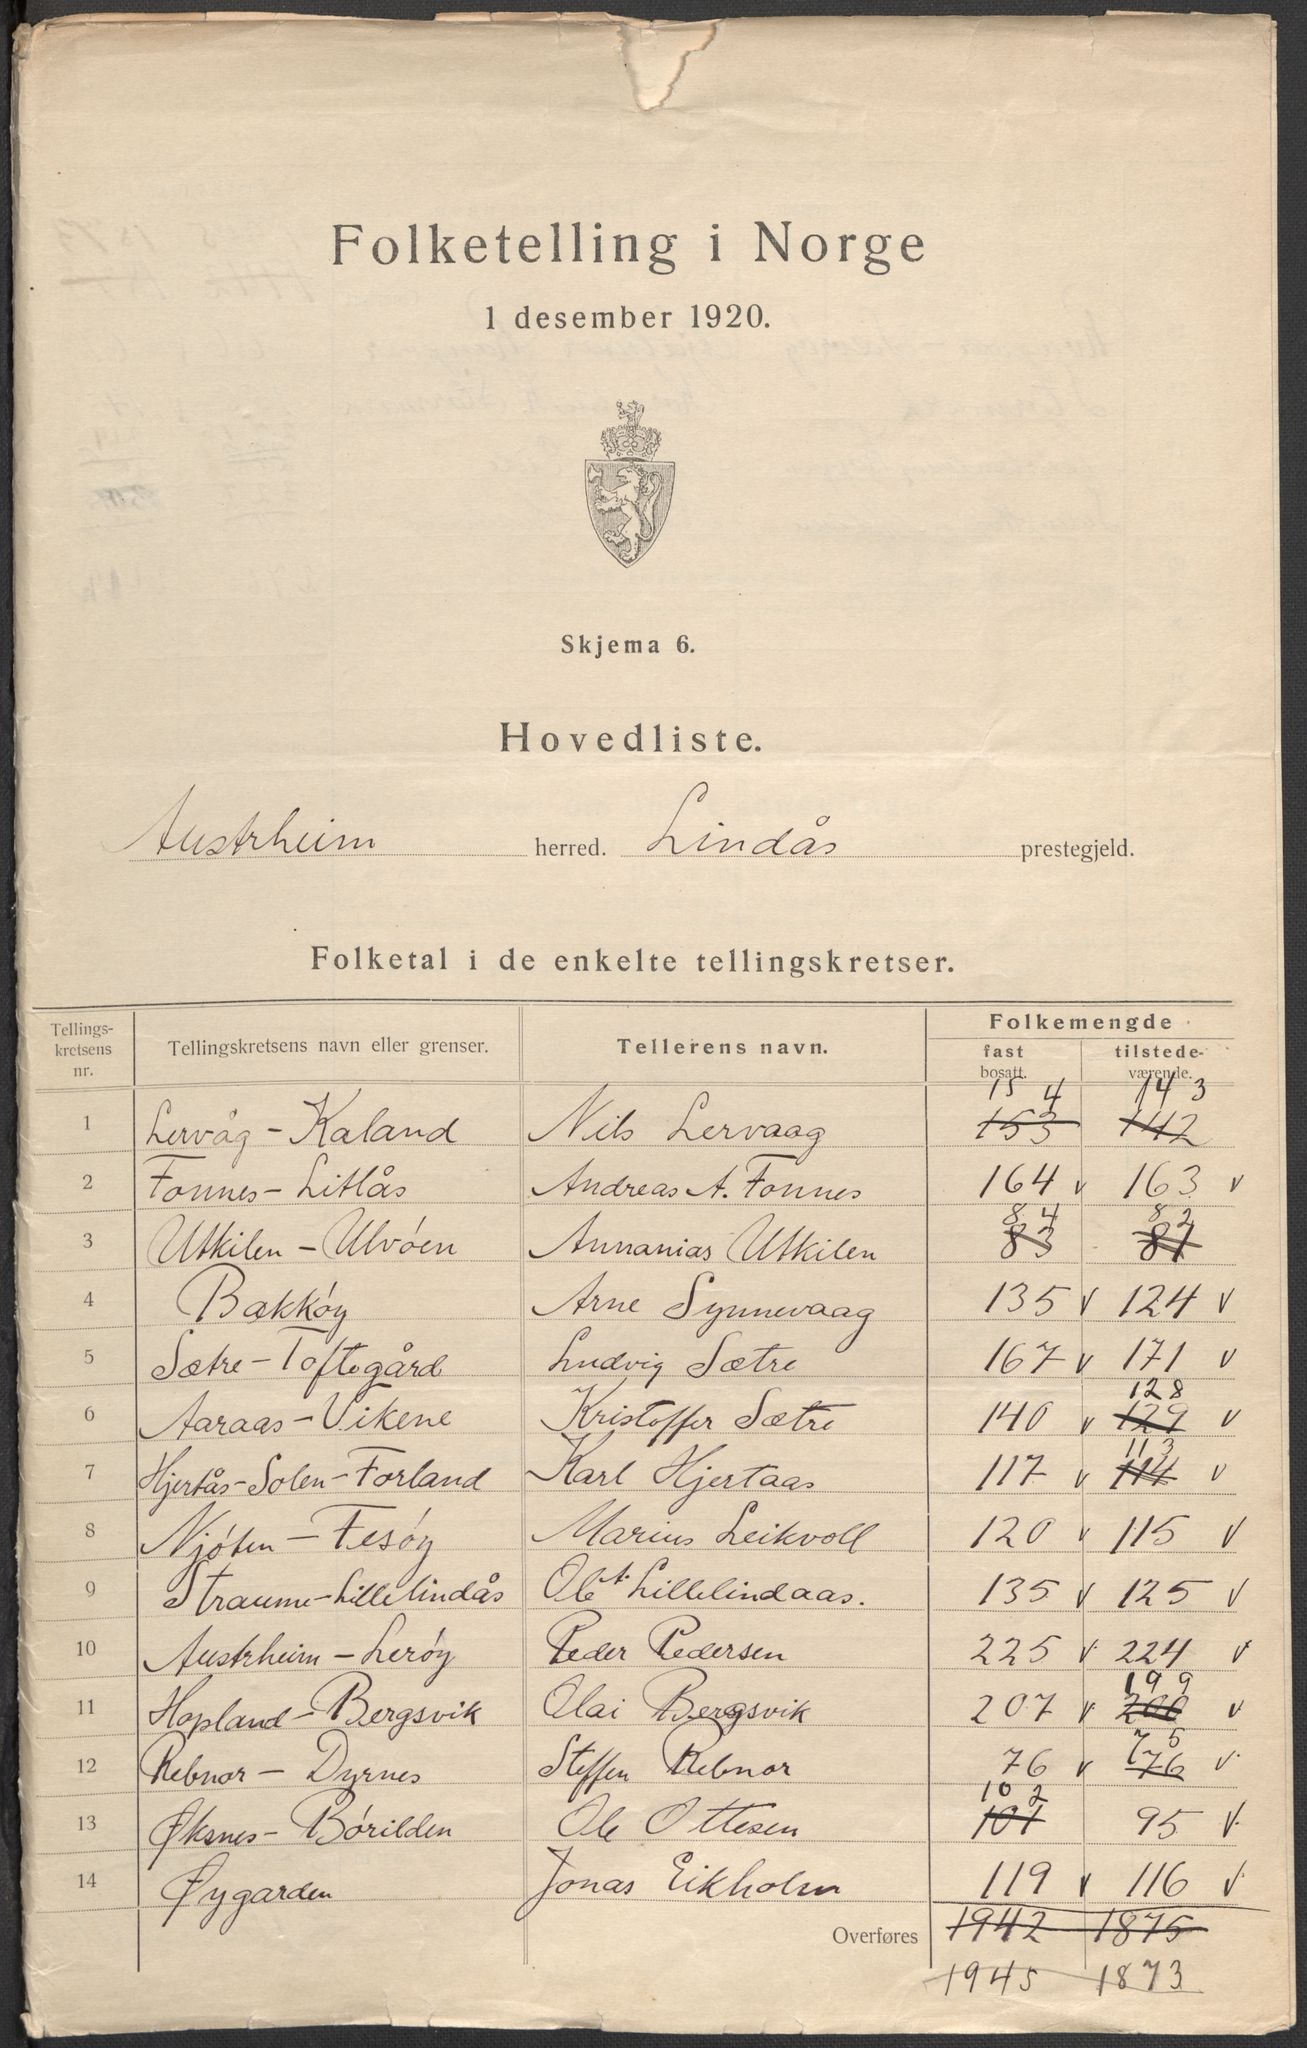 Folketelling i Norge
1 desember 1920.
Skjema 6.
Hovedliste.
Austrheim herred. Lindås prestegjeld.
Folketal i de enkelte tellingskretser.
Tellings-kretsens nr. Tellingskretsens navn eller grenser. Tellerens navn. Folkemengde
fast bosatt. tilstede-værende.
154 143
1 Lervåg - Kaland Nils Lervaag 153 142
2 Fonnes - Litlås Andreas A. Fonnes 164 v 163 v
84 82
3 Utkilen - Ulvöen Annanias Utkilen 83 81
4 Bakköy Arne Synnevaag 135 v 124 v
5 Sætre - Toftegård Ludvig Sætre 167 v 171 v
128
6 Aaraas - Vikene Kristoffer Sætre 140 v 129 v
113
7 Hjertås - Solen - Forland Karl Hjertaas 117 v 114 v
8 Njöten - Fesöy Marius Leikvoll 120 v 115 v
9 Straume - Lillelindås Ole A. Lillelindaas. 135 v 125 v
10 Austrheim - Leröy Peder Pedersen 225 v 224 v
199
11 Hopland - Bergsvik Olai Bergsvik 207 v 200 v
75
12 Rebnor - Dyrnes Steffen Rebnor 76 v 76 v
102
13 Øksnes - Börilden Ole Ottesen 101 95 v
14 Øygarden Jonas Eikholm 119 v 116 v
Overføres 1942 1875
1945 1873